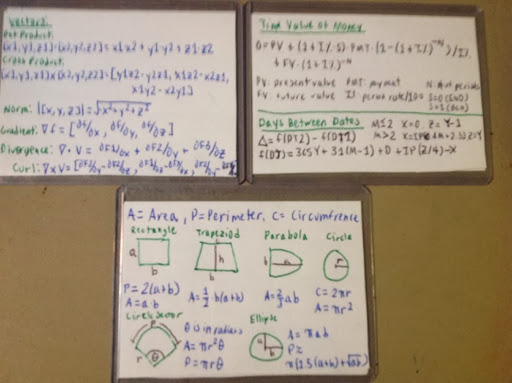 Vectors:
Dot Product:
(x1,y1,z1)·(x2,y2,z2) = x1·x2 + y1·y2 + z1·z2
Cross Product:
(x1,y1,z1)×(x2,y2,z2) = [y1x2-y2z1, x1z2-x2z1,
x1y2-x2y1]
Norm: |[x,y,z]| = √x²+y²+z²
Gradient: ∇f = [∂f/∂x, ∂f/∂y, ∂f/∂z]
Divergence: ∇·V =
Curl: ∇×V =
Time Value of Money
0=PV + (1+I%·S)·PMT·(1-(1+I%)^-N)/I%
+ FV·(1+I%)^-N
PV: present value PMT: payment N: # of periods
FV: future value I%: period rate/100 S=0 (END)
S=1 (BGN)
Days Between Dates
M≤2 X=0 Z=Y-1
Δ=f(DT2)-f(DT1) M>2
f(DT)=365Y+31(M-1)+D+IP(Z/4)-X
A= Area, P= Perimeter, C= Circumfrence
Rectangle Trapeziod Parabola Circle
a b h b b a r
P=2(a+b) A=½·h(a+b) A=⅔ab C=2πr
A=a·b A=πr²
Circle Sector Ellipse
P r θ
θ is in radians
A=πr²θ
P=πrθ
a b
A=πab
P≈
π(1.5(a+b)-√ab)